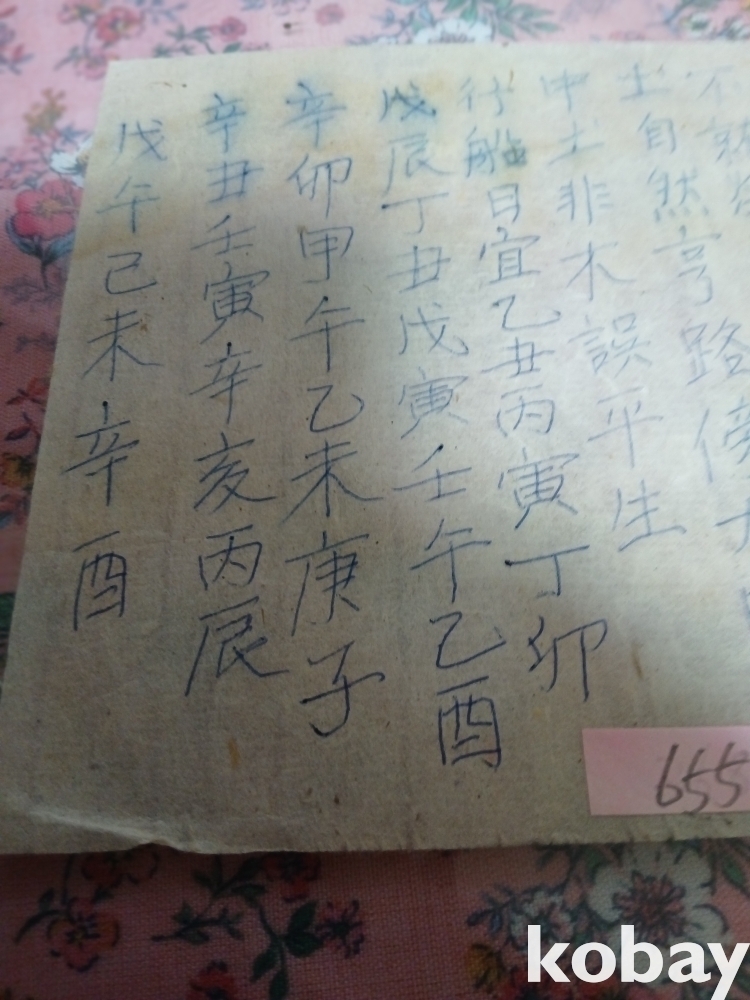 土自然亨路傍
中土非木誤平生
行船日宜乙丑丙寅丁卯
戊辰丁丑戊寅壬午乙酉
辛卯甲午乙未庚子
辛丑壬寅辛亥丙辰
戊午己未辛酉
655
kobay